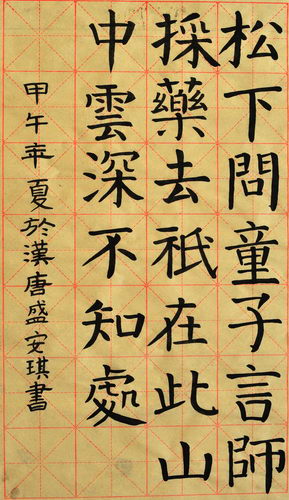 松下問童子言師
採藥去祇在此山
中雲深不知處
甲午年夏於漢唐盛安琪書